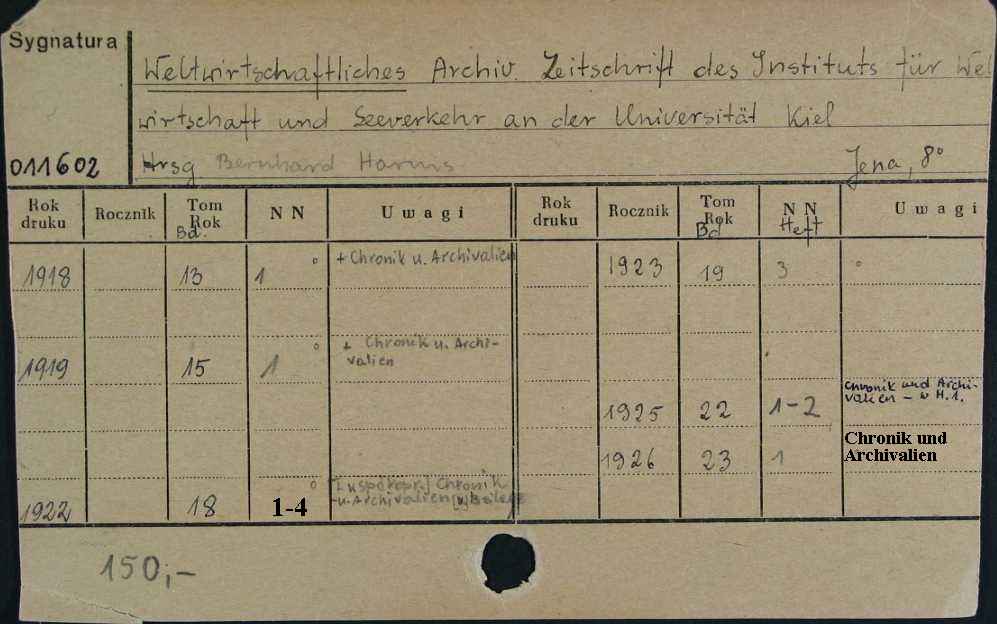 Sygnatura
Weltwirtschaftliches Archiv. Zeitschrift des Instituts für Wel
wirtschaft und Seeverkehr an der Universität Kiel
011602 Hrsg. Bernhard Harms Jena, 8°
Rok druku Rocznik Tom Rok Bd. N N Uwagi Rok druku Rocznik Tom Rok Bd N N Heft Uwagi
1918 13 1 ° + Chronik u. Archivalien 1923 19 3 °
1919 15 1 ° + Chronik u. Archi-
valien
1925 22 1-2 Chronik und Archi-
valien - w H.1.
1926 23 1 Chronik und
Archivalien
1922 18 1-4 ° Chronik
u. Archivalien
150,-